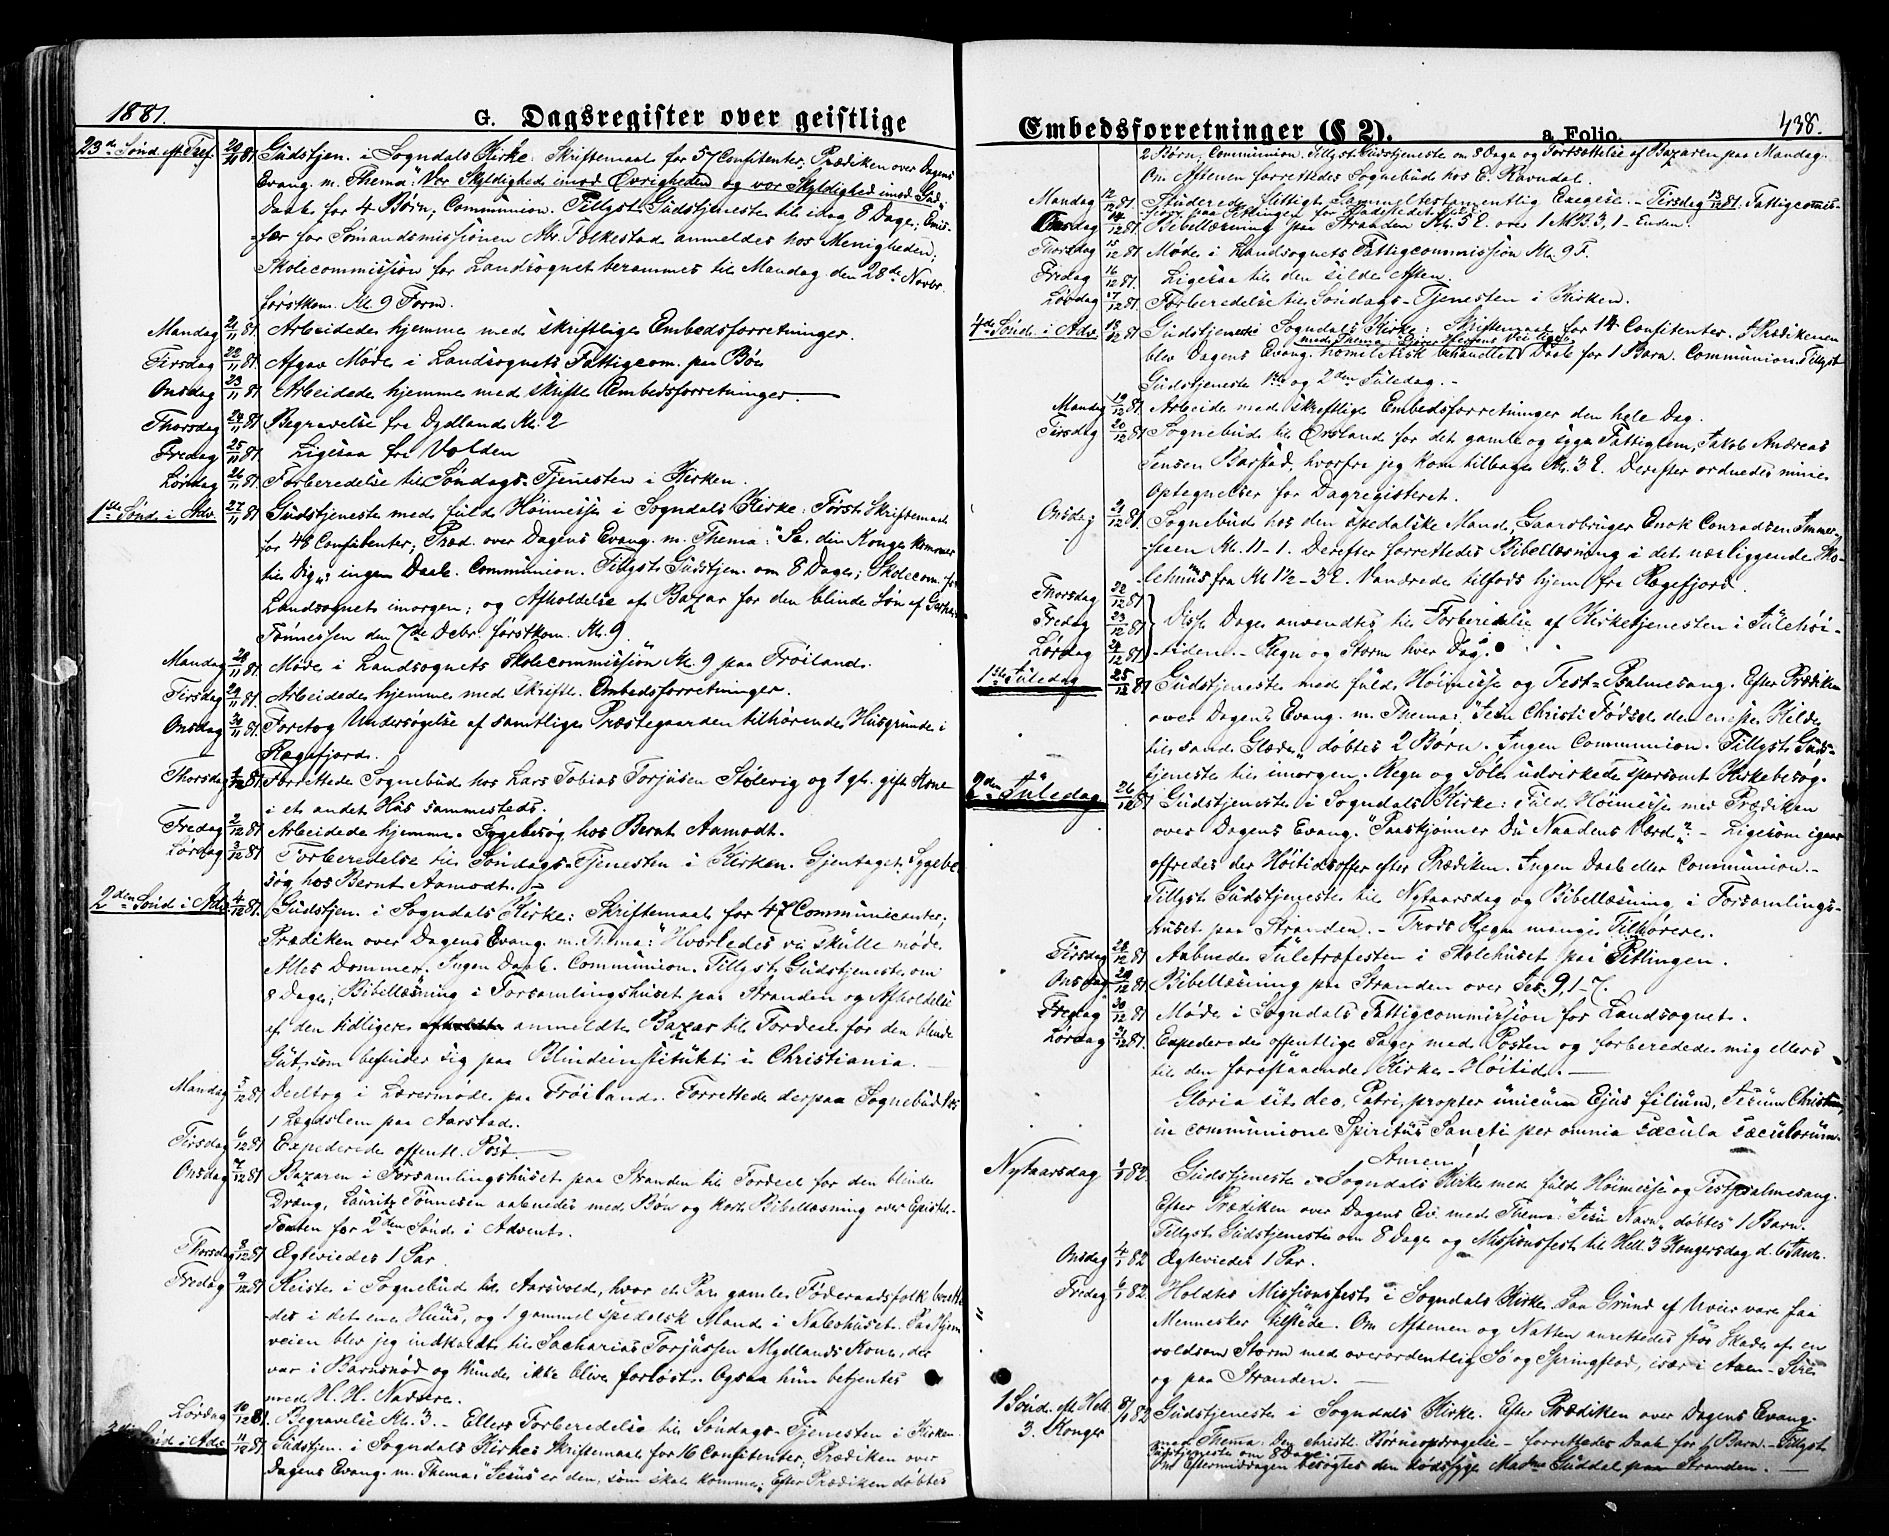 1881.
G. Dagsregister over geistlige
23de Sønd. eft. Tref. 20/11 81. Gudstjen. i Sogndals Kirke: Skriftemaal for 57 Confitenter, Prædiken over Dagens
Evang. m. Thema: "Vor Skyldighed imod Øvrigheden og vor Skyldighed imod Gud";
Daab for 4 Børn; Communion. Tillyst Gudstjeneste til idag 8 Dage; Emis-
sær for Sømandsmissionen Folkestad anmeldes hos Menigheden;
Skolecommission for Landsognet berammes til Mandag den 28de Novbr.
førstkom. Kl. 9 Form.
Mandag 21/11 81. Arbeidede hjemme med skriftlige Embedsforretninger.
Tirsdag 22/11 81. Afgav Møde i Landsognets Fattigcom. paa Bøe
Onsdag 23/11 81. Arbeidede hjemme med skriftl. Embedsforretninger.
Thorsdag 24/11 81. Begravelse fra Dydland Kl. 2
Fredag 25/11 81. Ligesaa fra Volden
Lørdag 26/11 81. Forberedelse til Søndags-Tjenesten i Kirken.
1ste Sønd. i Adv. 27/11 81. Gudstjeneste med fuld Høimesse i Sogndals Kirke: Først Skriftemaal
for 48 Confitenter; Præd. over Dagens Evang. m. Thema: "Se, din Konge kommer
til Dig"; ingen Daab. Communion. Tillyst Gudstjen. om 8 Dage; Skolecom. for
Landsognet imorgen; og Afholdelse af Bazar for den blinde Søn af
Tønnessen den 7de Debr. førstkom. Kl. 9
Mandag 28/11 81. Møde i Landsognets Skolecommission Kl. 9 paa Frøiland.
Tirsdag 29/11 81. Arbeidede hjemme med skriftl. Embedsforretninger.
Onsdag 30/11 81. Foretog Undersøgelse af samtlige Præstegaarden tilhørende Husgrunde i
Rægefjord.
Thorsdag 1/12 81. Forrettede Sognebud hos Lars Tobias Torjusen Stølevig og 1 gl. gift Kone
i et andet Hus sammesteds.
Fredag 2/12 81. Arbeidede hjemme. Sygebesøg hos Bernt Aamodt.
Lørdag 3/12 81. Forberedelse til Søndags-Tjenesten i Kirken. Gjentaget Sygebe-
søg hos Bernt Aamodt.
2den Sønd. i Adv. 4/12 81. Gudstjen. i Sogndals Kirke: Skriftemaal for 47 Communicanter;
Prædiken over Dagens Evang. m. Thema: "Hvorledes vi skulle møde
Alles Dommer. Ingen Daab. Communion. Tillyst Gudstjeneste om
8 Dage; Bibellæsning i Forsamlingshuset paa Stranden og Afholdelse
af den tidligere anmeldte Bazar til Fordeel for den blinde
Gut, som befinder sig paa Blindeinstitutet i Christiania.
Mandag 5/12 81. Deeltog i Lærermøde paa Frøiland. Forrettede derpaa Sognebud hos
1 Lægdslem paa Aarstad.
Tirsdag 6/12 81. Expederede offentl. Post.
Onsdag 7/12 81. Bazaren i Forsamlingshuset paa Stranden til Fordeel for den blinde
Dreng, Lauritz Tønnesen aabnedes med Bøn og kort Bibellæsning over Epistel-
Texten for 2den Sønd. i Advent.
Thorsdag 8/12 81. Ægteviedes 1 Par.
Fredag 9/12 81. Reiste i Sognebud til Aarsvold, hvor et Par gamle Føderaadsfolk berette-
des i det ene Huus, og 1 gammel spedalsk Mand i Nabohuset. Paa Hjem-
veien blev jeg indkaldt til Sacharias Torjussen Mydlands Kone, der
var i Barnsnød og kunde ikke blive forløst. Ogsaa hun betjentes
med H. H. Nadvere.
Lørdag 10/12 81. Begravelse Kl. 3. - Ellers Forberedelse til Søndags-Tjenesten i Kirken.
3die Sønd. i Adv. 11/12 81. Gudstjen. i Sogndals Kirke: Skriftemaal for 16 Confitenter, Prædiken over
Dagens Evang. m. Thema: "Jesus er den, som skal komme; Efter Prædiken døbtes
Embedsforretninger (§ 2).
a Folio.
438.
2 Børn; Communion. Tillyst Gudstjeneste om 8 Dage og Fortsættelse af Bazaren paa Mandag.
Om Aftenen forrettedes Sognebud hos E. Ravndal.
Mandag 12/12 81. Studerede flittigt Gammeltestamentlig Exegese. - Tirsdag 13/12 81. Fattigcommis-
Onsdag 14/12 81. Bibellæsning paa Stranden Kl. 5 E. over 1 M.B. 3, 1 - Enden.
Thorsdag 15/12 81. Møde i Landsognets Fattigcommission Kl. 9 F.
Fredag 16/12 81. Ligesaa til den silde Aften.
Lørdag 17/12 81. Forberedelse til Søndags-Tjenesten i Kirken.
4de Sønd. i Adv. 18/12 81. Gudstjeneste Sogndals Kirke: Skriftemaal for 14 Confitenter. I Prædikenen
med Thema: Gjører Herrens Vei lige
blev Dagens Evang. homiletisk behandlet. Daab for 1 Barn. Communion. Tillyst
Gudstjeneste 1ste og 2den Juledag. -
Mandag 19/12 81. Arbeide med skriftlige Embedsforretninger den hele Dag.
Tirsdag 20/12 81. Sognebud til Ørsland for det gamle og syge Fattiglem, Jakob Andreas
Jensen Barstad, hvorfra jeg kom tilbage Kl. 3 E. Derefter ordnedes mine
Optegnelser for Dagregisteret.
Onsdag 21/12 81. Sognebud hos den spedalske Mand, Gaardbruger Enok Conradsen Immer-
steen Kl. 11-1. Derefter forrettedes Bibellæsning i det nærliggende Sko-
lehuus fra Kl. 1½ - 3 E. Vandrede tilfods hjem fra Rægefjord.
Thorsdag 22/12 81.
Fredag 23/12 81. Disse Dage anvendtes til Forberedelse af Kirketjenesten i Julehøi-
Lørdag 24/12 81. tiden. - Regn og Storm hver Dag.
1ste Juledag 25/12 81. Gudstjeneste med fuld Høimesse og Fest-Psalmesang. Efter Prædiken
over Dagens Evang. m. Thema: "Jesu Christi Fødsel den eneste Kilde
til sand Glæde, døbtes 2 Børn. Ingen Communion. Tillyst Guds-
tjeneste til imorgen. Regn og Sole udvirkede sparsomt Kirkebesøg.
2den Juledag 26/12 81. Gudstjeneste i Sogndals Kirke: Fuld Høimesse med Prædiken
over Dagens Evang. "Paaskjønner Du Naadens Værd"? - Ligesom igaar
offredes der Høitidsoffer efter Prædiken. Ingen Daab eller Communion. -
Tillyst Gudstjeneste til Nytaarsdag og Bibellæsning i Forsamlings-
huset paa Stranden. - Trods Regn mange Tilhørere.
Tirsdag 28/12 81. Aabnede Juletræfesten i Skolehuset paa Titlingen.
Onsdag 29/12 81. Bibellæsning paa Stranden over Jes. 9, 1-7.
Fredag 30/12 81. Møde i Sogndals Fattigcommission for Landsognet.
Lørdag 31/12 81. Expederede offentlige Sager med Posten og forberedede mig ellers
til den forestaaende Kirke-Høitid. -
Gloria sit deo, Patri, propter unicum Ejus filium, Jesum Christum,
in communione Spiritus Sancti per omnia sæcula sæculorum.
Amen!
Nytaarsdag 1/1 82. Gudstjeneste i Sogndals Kirke med fuld Høimesse og Festpsalmesang.
Efter Prædiken over Dagens Ev. med Thema: "Jesu Navn" døbtes 1 Barn.
Tillyst Gudstjeneste om 8 Dage og Missionsfest til Hell. 3 Kongersdag d. 6 Janr.
Onsdag 4/1 82. Ægteviedes 1 Par.
Fredag 6/1 82. Holdtes Missionsfest i Sogndals Kirke. Paa Grund af Uveir vare faa
Mennesker tilstede. Om Aftenen og Natten anrettedes stor Skade af en
voldsom Storm med overordentlig Sø og Springflod, især i Aaen-Sire
og paa Stranden. -
1 Sønd. eft. Hell. 8/1 82. Gudstjeneste i Sogndals Kirke. Efter Prædiken over Dagens Evang.
3. Konger med Thema: Den christl. Børneopdragelse - forrettedes Daab for 1 Barn. - Tillyst
Gudstjeneste om 8 Dage.
Om Eftermiddagen besøgtes den dødssyge Madme Guddal, paa Stranden. -